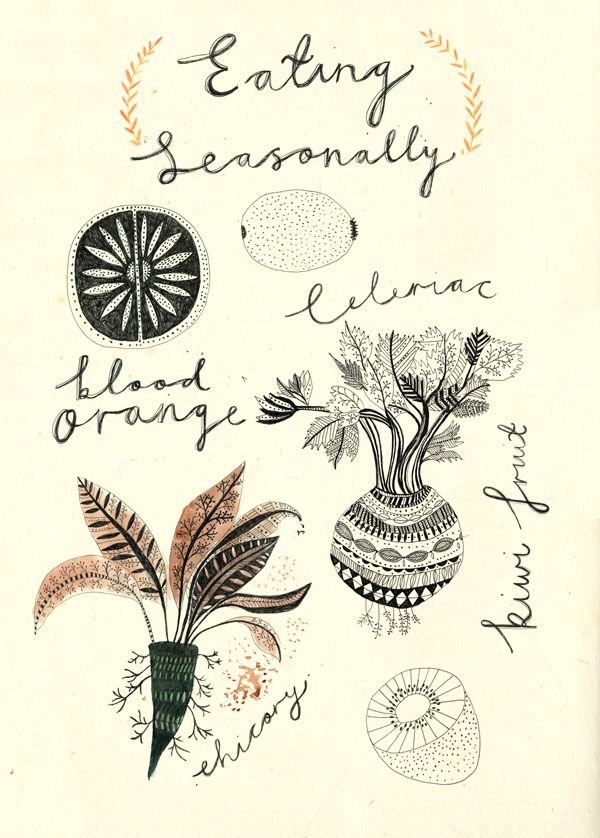 Eating
Seasonally
Celeriac
blood
orange
kiwi fruit
chicory